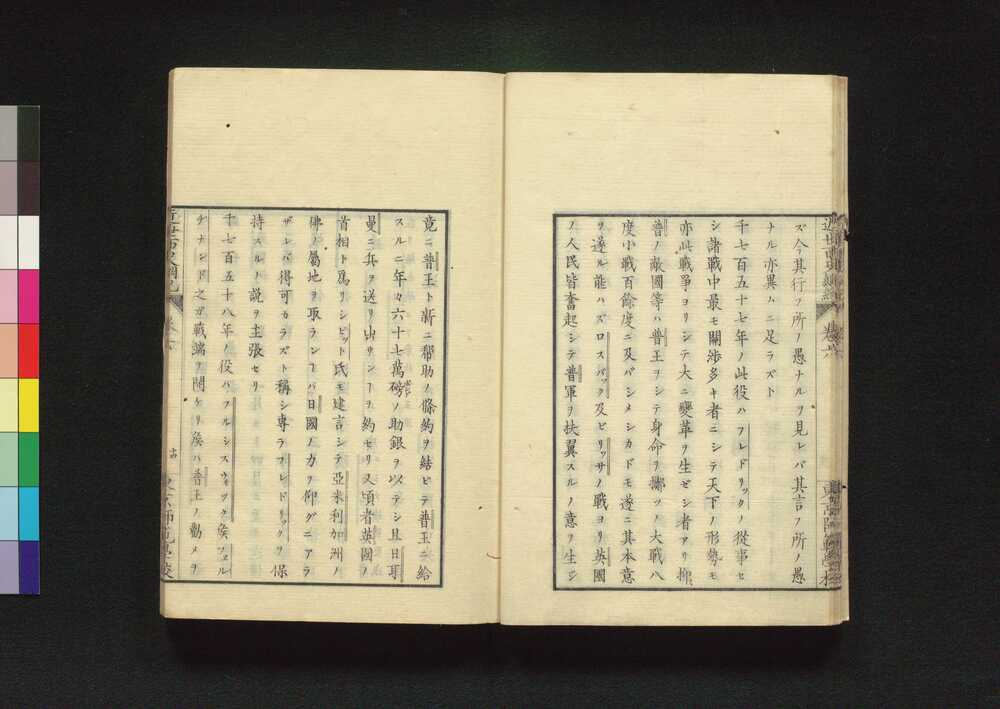 ズ今其行フ所ノ愚ナルヲ見レバ其言フ所ノ愚
ナル亦異ムニ足ラズト
千七百五十七年ノ此役ハフレドリックノ從事セ
シ諸戰中最モ關渉多キ者ニシテ天下ノ形勢モ
亦此戰爭ヨリシテ大ニ變革ヲ生ゼシ者アリ抑
普ノ敵國等ハ普王ヲシテ身命ヲ擲ツノ大戰八
度小戰百餘度ニ及バシメシカドモ遂ニ其本意
ヲ達ル能ハズロスバック及ビリッサノ戰ヨリ英國
ノ人民皆奮起シテ普軍ヲ扶翼スルノ意ヲ生ジ
竟ニ普王ト新ニ帮助ノ條約ヲ結ビテ普王ニ給
スルニ年々六十七萬磅ノ助銀ヲ以テシ且日耳
曼ニ兵ヲ送リ出サンヿヲ約セリ又頃者英國ノ
首相ト爲リシピット氏モ建言シテ亞米利加洲ノ
佛ノ屬地ヲ取ランコハ日國ノ力ヲ仰グニアラ
ザレバ得可カラズト稱シ專ラフレドリックヲ保
持スルノ說ヲ主張セリ
千七百五十八年ノ役ハブルンスウィック侯フェル
ヂナンド之ガ戰端ヲ開ケリ侯ハ普王ノ勸メヲ